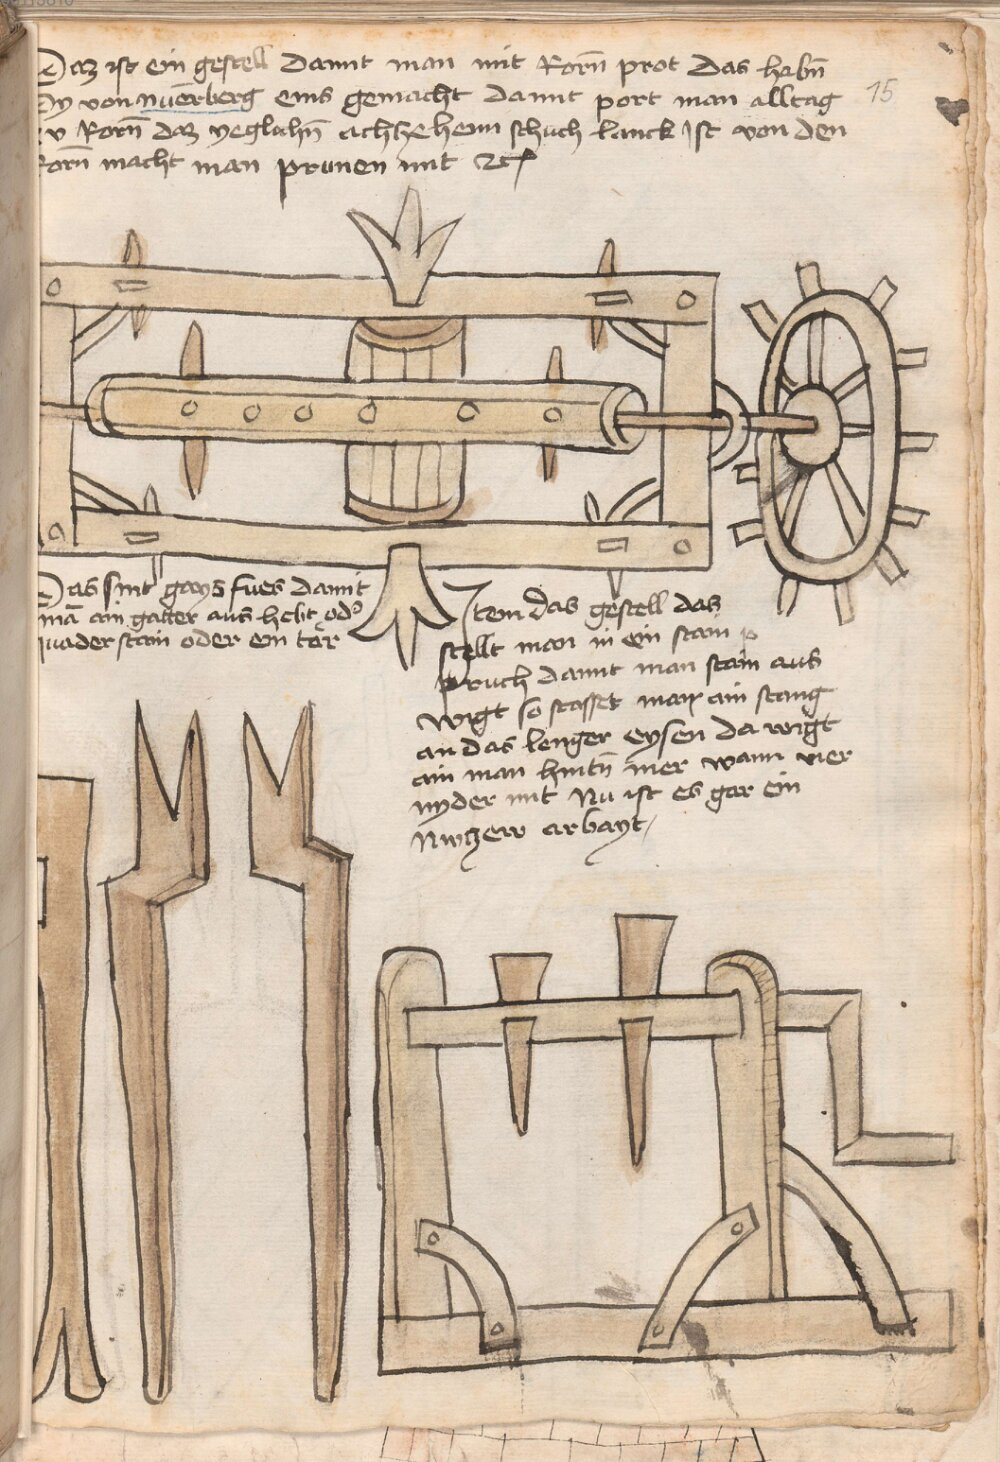 Daz ist ein gestell damit man mit Rorn̄ prot das habn̄
Dy von nurerberg eins gemacht damit port man alltag
xv Rorn̄ daz yeglichn̄ achtzehenn schuch lanck Ist von den
Rorn̄ macht man prunen mit
15
Das sint gays fues damit
mā ain gatter aus hebt od̛
quader stain oder ein tör
Item das gestell das
stellt man in ein stain p
pruch damit man stain aus
wigt so stosset man ain stang
an das lenger eysen da wigt
ain man hintn̄ mer wann vier
nyder mit Nu ist es gar ein
arbayt/